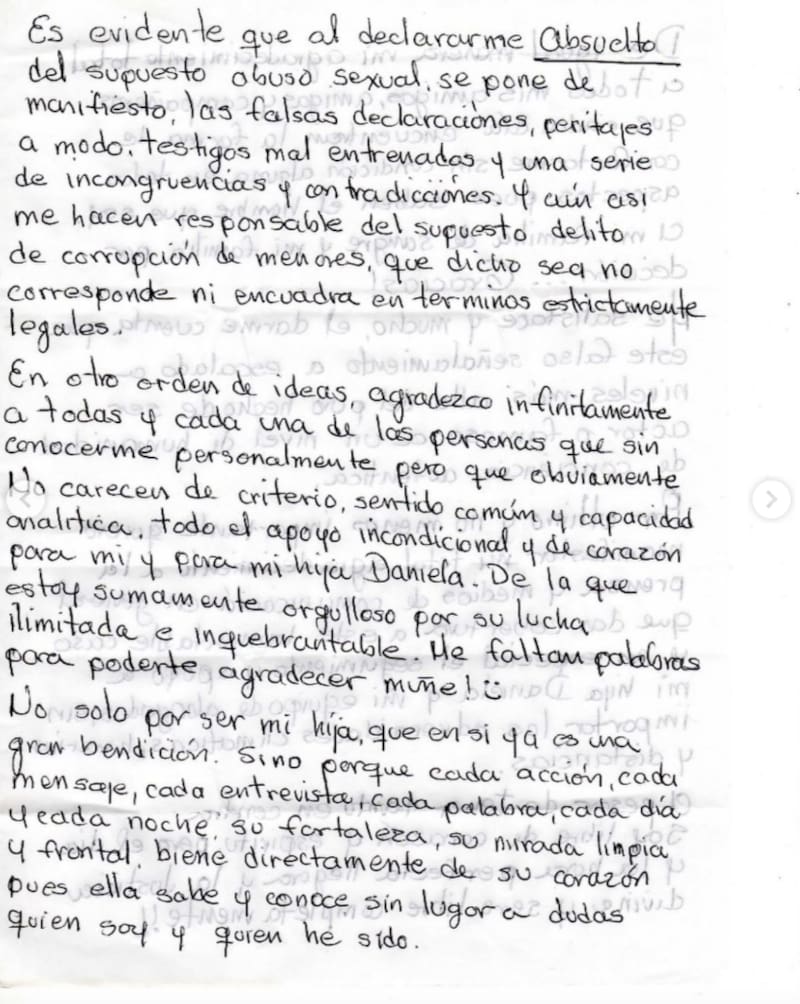 Es evidente que al declararme Absuelto
del supuesto abuso sexual, se pone de
manifiesto, las falsas declaraciones, peritajes
a modo, testigos mal entrenadas y una serie
de incongruencias y contradicciónes. Y aún asi
me hacen responsable del supuesto delito
de corrupción de menores, que dicho sea no
corresponde ni encuadra en terminos estrictamente
legales.
En otro orden de ideas, agradezco infinitamente
a todas y cada una de las personas que sin
conocerme personalmente pero que obviamente
No carecen de criterio, sentido común y capacidad
analítica, todo el apoyo incondicional y de corazón
para mi y para mi hija Daniela. De la que
estoy sumamente orgulloso por su lucha
ilimitada e inquebrantable. Me faltan palabras
para poderte agradecer muñe!
No solo por ser mi hija, que en si ya es una
gran bendición. Sino porque cada acción, cada
mensaje, cada entrevista, cada palabra, cada día
y cada noche, su fortaleza, su mirada limpia
y frontal, biene directamente de su corazón
pues ella sabe y conoce sin lugar a dudas
quien soy y quien he sido.